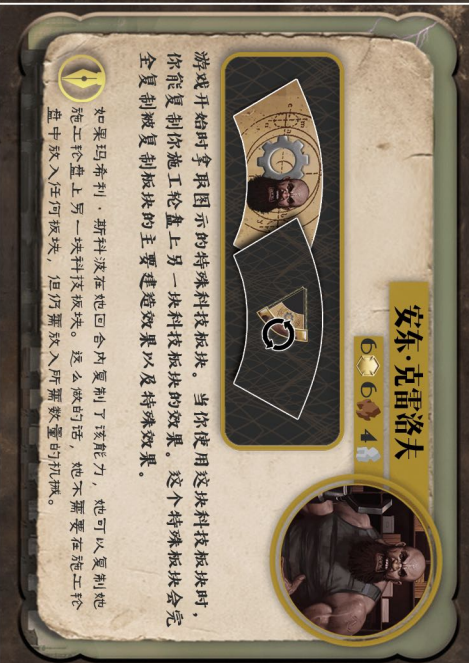 安东·克雷洛夫
6 6 4
游戏开始时拿取图示的特殊科技板块。当你使用这块科技板块时,
你能复制你施工轮盘上另一块科技板块的效果。这个特殊板块会完
全复制被复制板块的主要建造效果以及特殊效果。
如果玛希利·斯科波在她回合内复制了该能力,她可以复制她
施工轮盘上另一块科技板块。这么做的话,她不需要在施工轮
盘中放入任何板块,但仍需放入所需数量的机械。